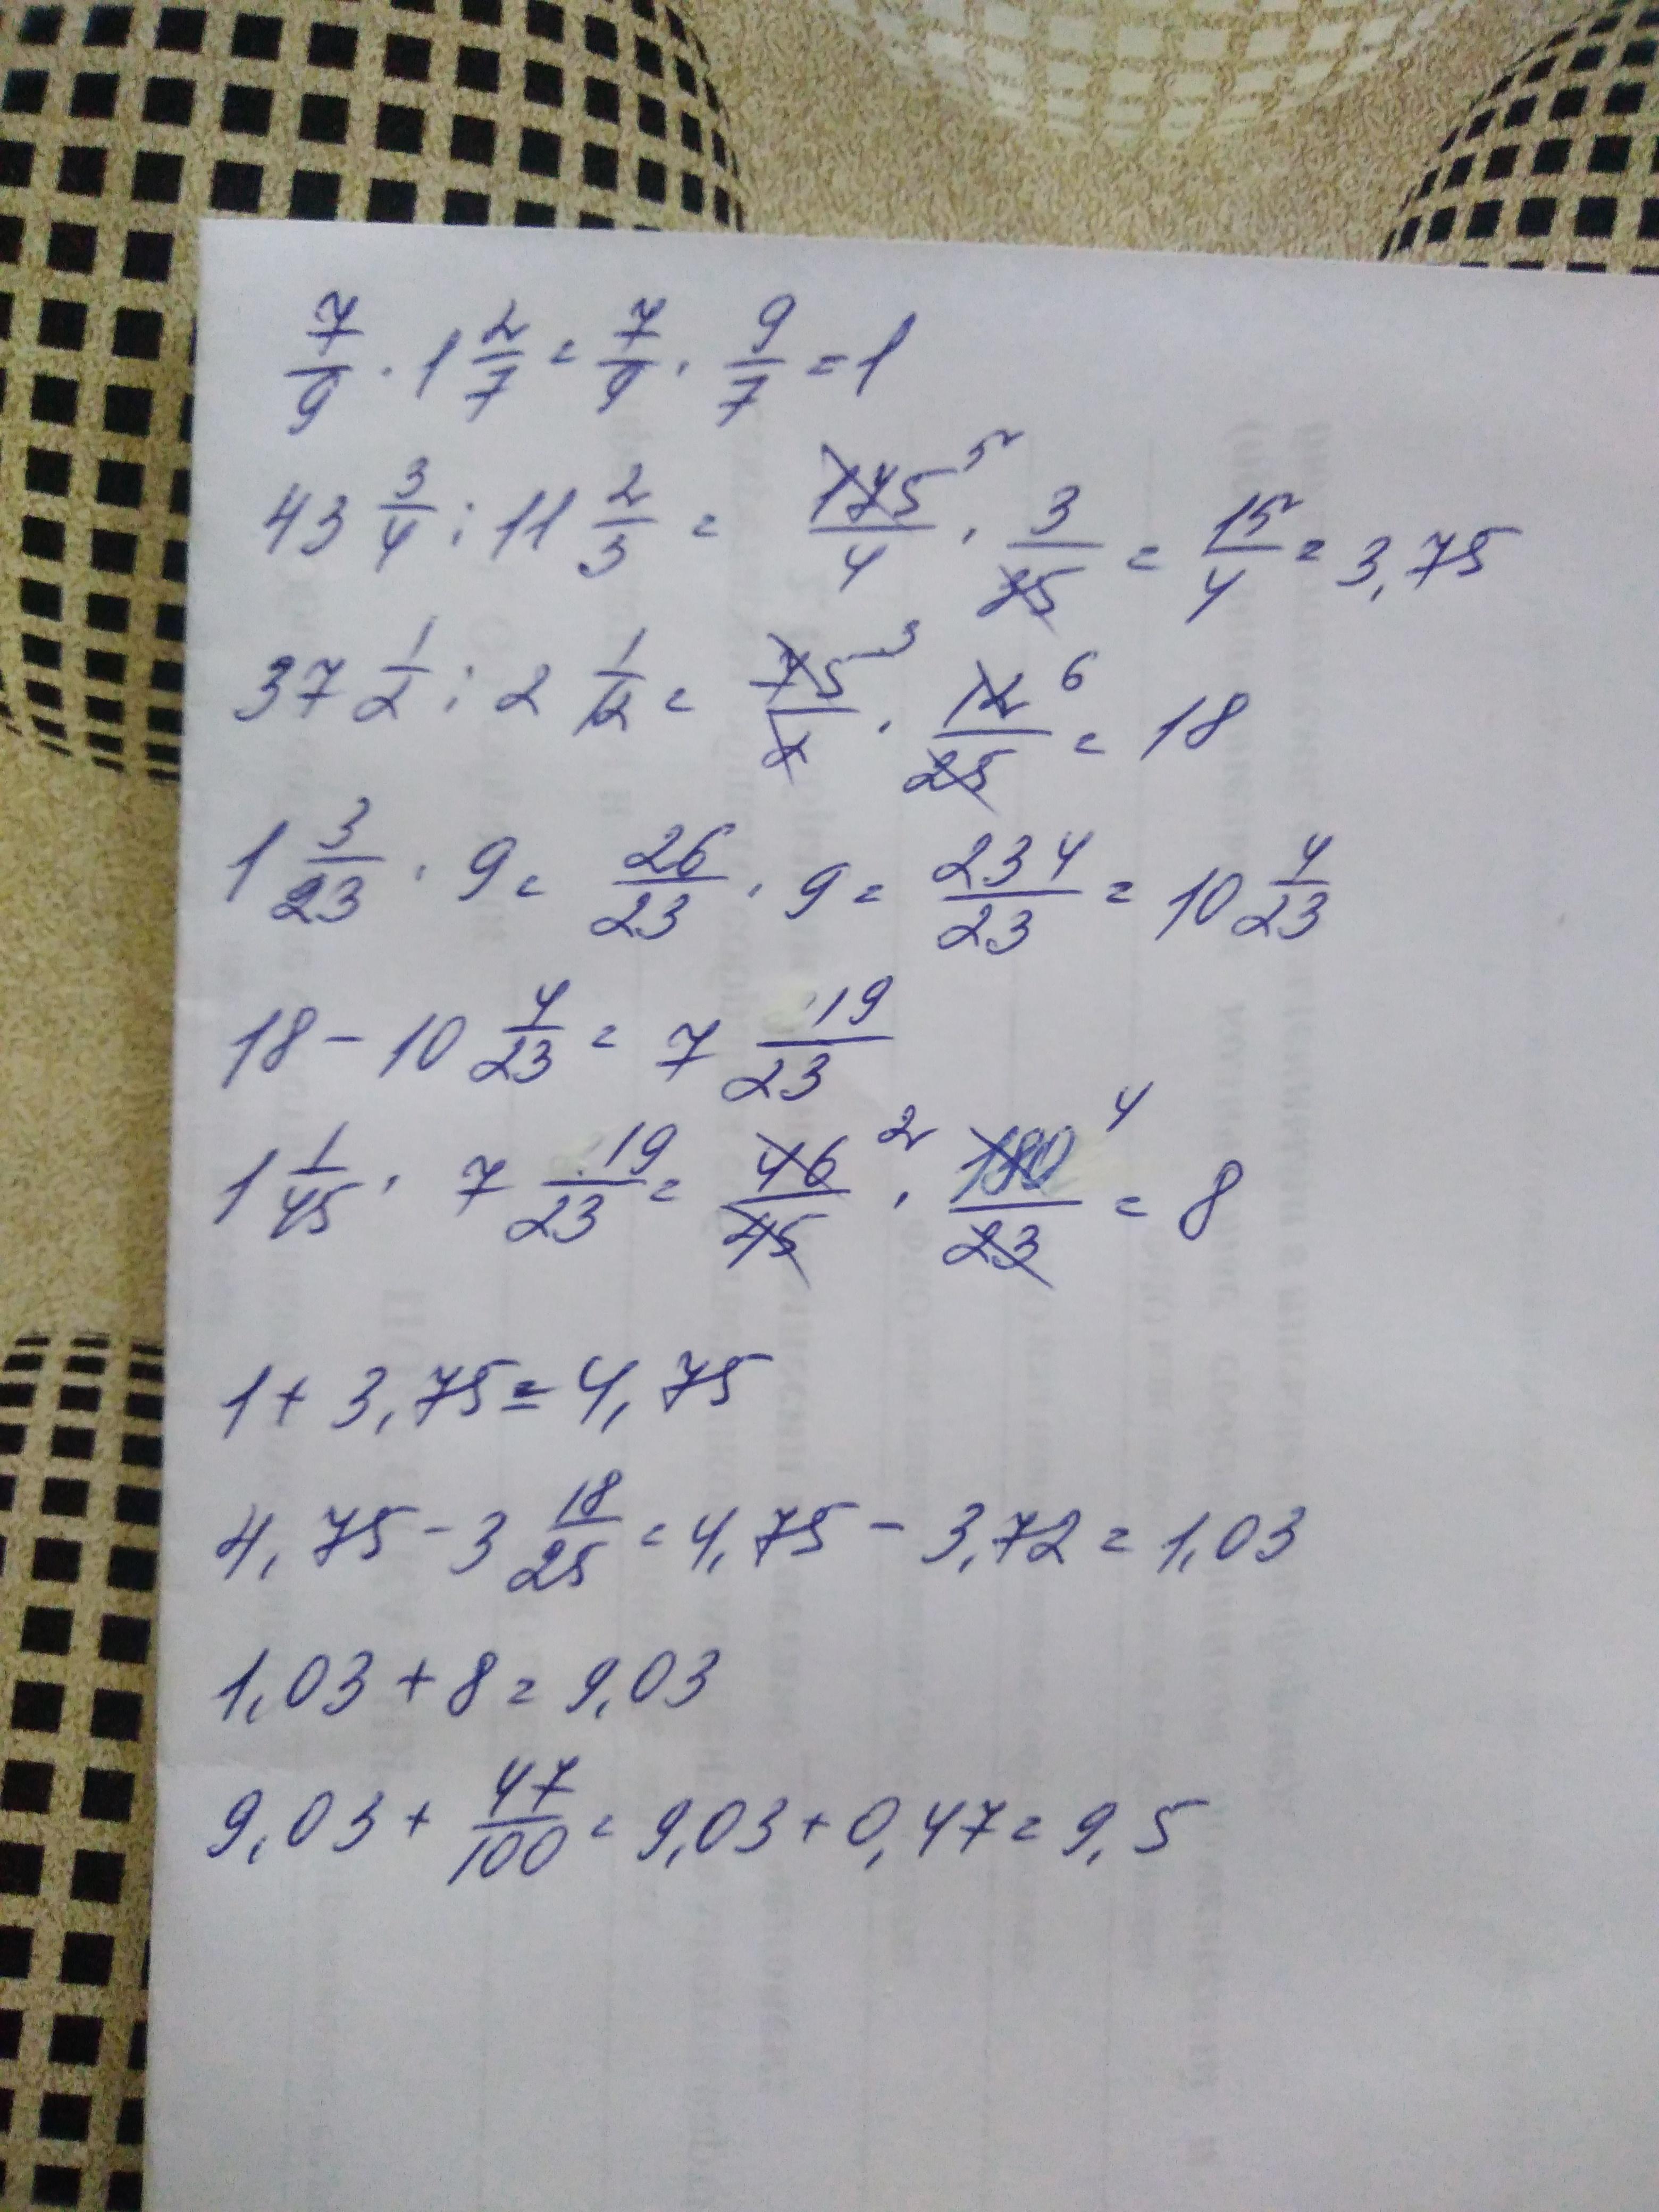 7/9 · 1 2/7 = 7/9 · 9/7 = 1
43 3/4 : 11 2/3 = 175 5/4 · 3/35 = 15/4 = 3,75
37 1/2 : 2 1/12 = 75 3/2 · 12 6/25 = 18
1 3/23 · 9 = 26/23 · 9 = 234/23 = 10 4/23
18 - 10 4/23 = 7 19/23
1 1/45 · 7 19/23 = 46 2/45 · 180 4/23 = 8
1 + 3,75 = 4,75
4,75 - 3 18/25 = 4,75 - 3,72 = 1,03
1,03 + 8 = 9,03
9,03 + 47/100 = 9,03 + 0,47 = 9,5